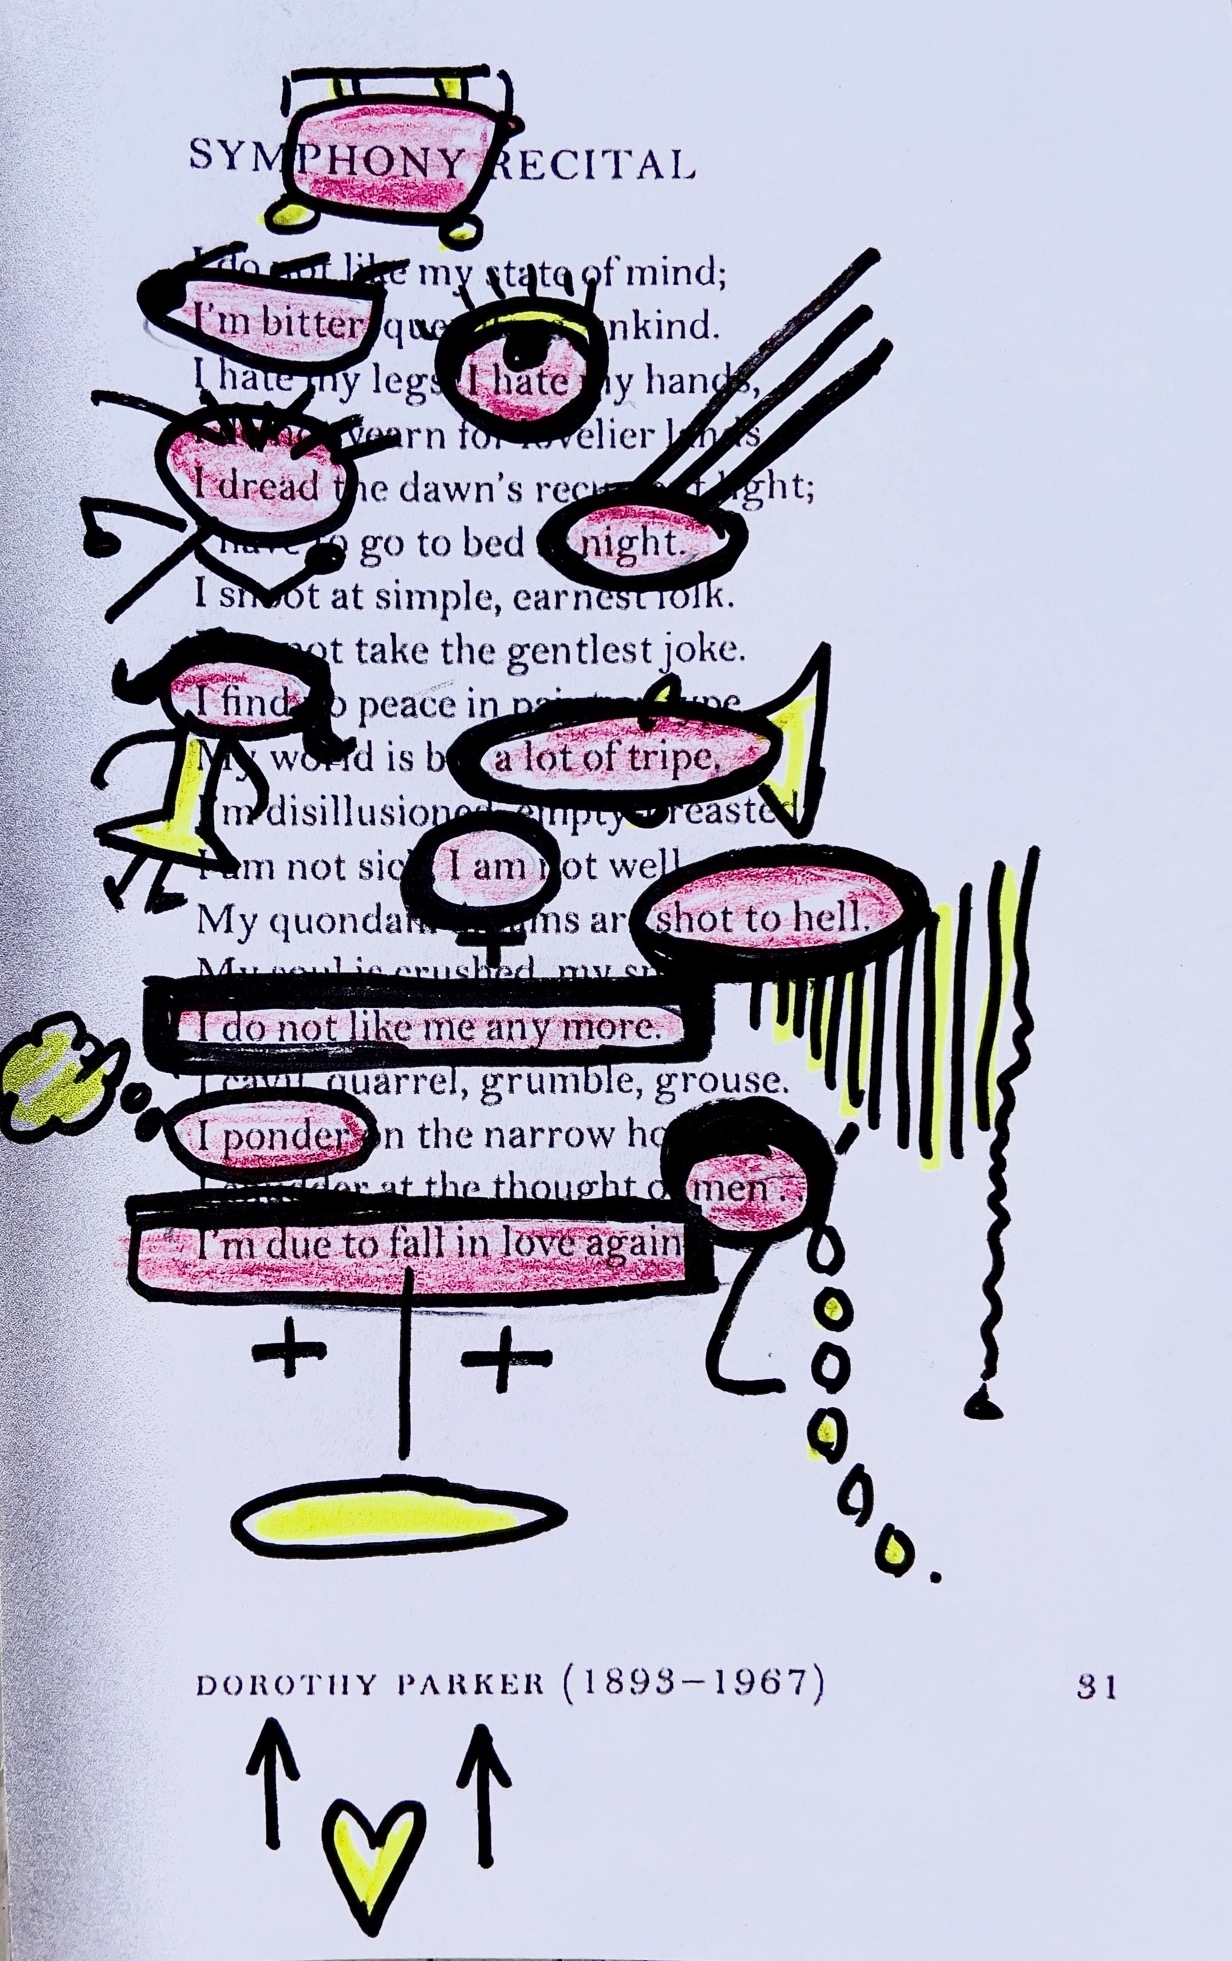 SYMPHONY RECITAL
I do not like my state of mind;
I'm bitter, nkind.
I hate my legs, I hate my hands,
yearn for lovelier lands
I dread the dawn's light;
have to go to bed night.
I shoot at simple, earnest folk.
not take the gentlest joke.
I find no peace in type.
My world is but a lot of tripe.
I'm disillusioned, empty-breasted
I am not sick I am not well.
My quondam are shot to hell.
My soul is crushed, my
I do not like me any more.
I cavil, quarrel, grumble, grouse.
I ponder on the narrow
at the thought of men..
I'm due to fall in love again
DOROTHY PARKER (1893–1967) 31